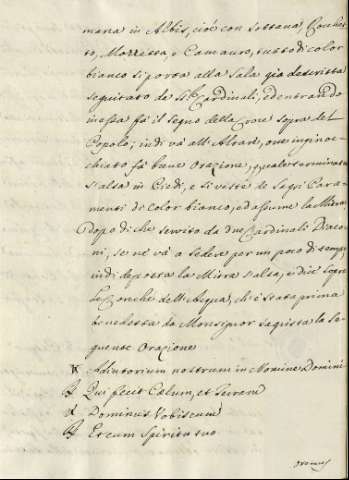 mana in Albis, cioè con Sottana, Rocchet-
to, Mozzetta, e Camauro, tutto di color
bianco si porta alla Sala già descritta
seguitato da SS.ri Cardinali, ed entrando
in essa fà il segno della Croce sopra del
Popolo; indi và all'Altare, ove inginoc-
chiato fà breve orazione, quale terminata
s'alza in Piedi, e si veste de Sagri Para-
menti di color bianco, ed assume la Mitra
dopo di che servito da due Cardinali Diaco-
ni, se ne và a sedere per un poco di tempo,
indi deposta la Mitra s'alza, e dice sopra
le Conche dell'Acqua, ch'è stata prima
benedetta da Monsignor Sagrista la se-
guente Orazione
℣ Adiutorium nostrum in Nomine Domini
℟ Qui fecit Cælum, et Terram
℣ Dominus Vobiscum
℟ Et cum Spiritu tuo
oremus